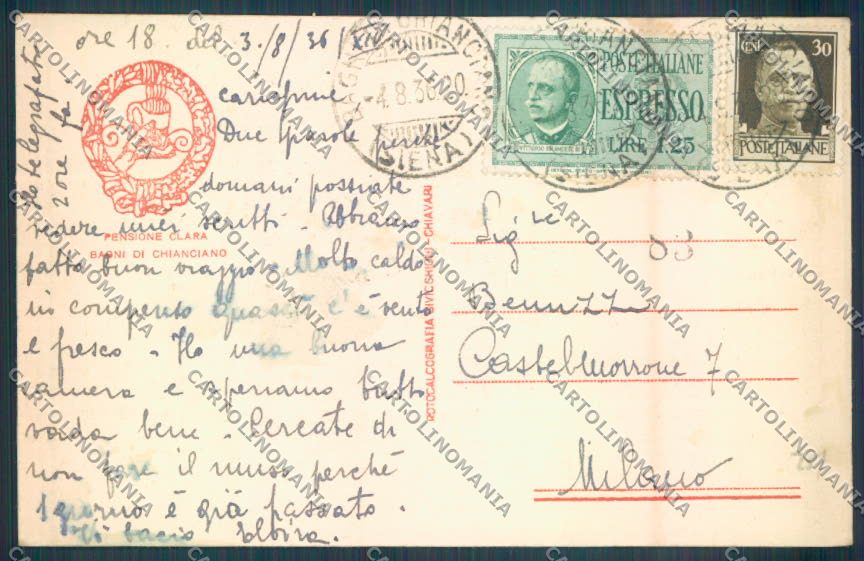 ore 18 del 3/8/36/XIV
Ho telegrafato
2 ore fa
carissimi
Due parole perché
domani possiate
vedere miei scritti - Abbiamo
fatto buon viaggio. Molto caldo
in compenso quassù c'è vento
e fresco - Ho una buona
camera e speriamo tutto
vada bene - Cercate di
non fare il muso perché
1 giorno è già passato.
Vi bacio Elvira.
PENSIONE CLARA
BAGNI DI CHIANCIANO
ROTOCALCOGRAFIA CIVICCHIONI - CHIAVARI
CHIANCIANO
-4.8.36.20
(SIENA)
POSTE ITALIANE
ESPRESSO
LIRE 1.25
VITTORIO EMANUELE III
CENT 30
POSTE ITALIANE
Sig.re
83
Benuzzi
Castelmorrone 7
Milano
CARTOLINOMANIA